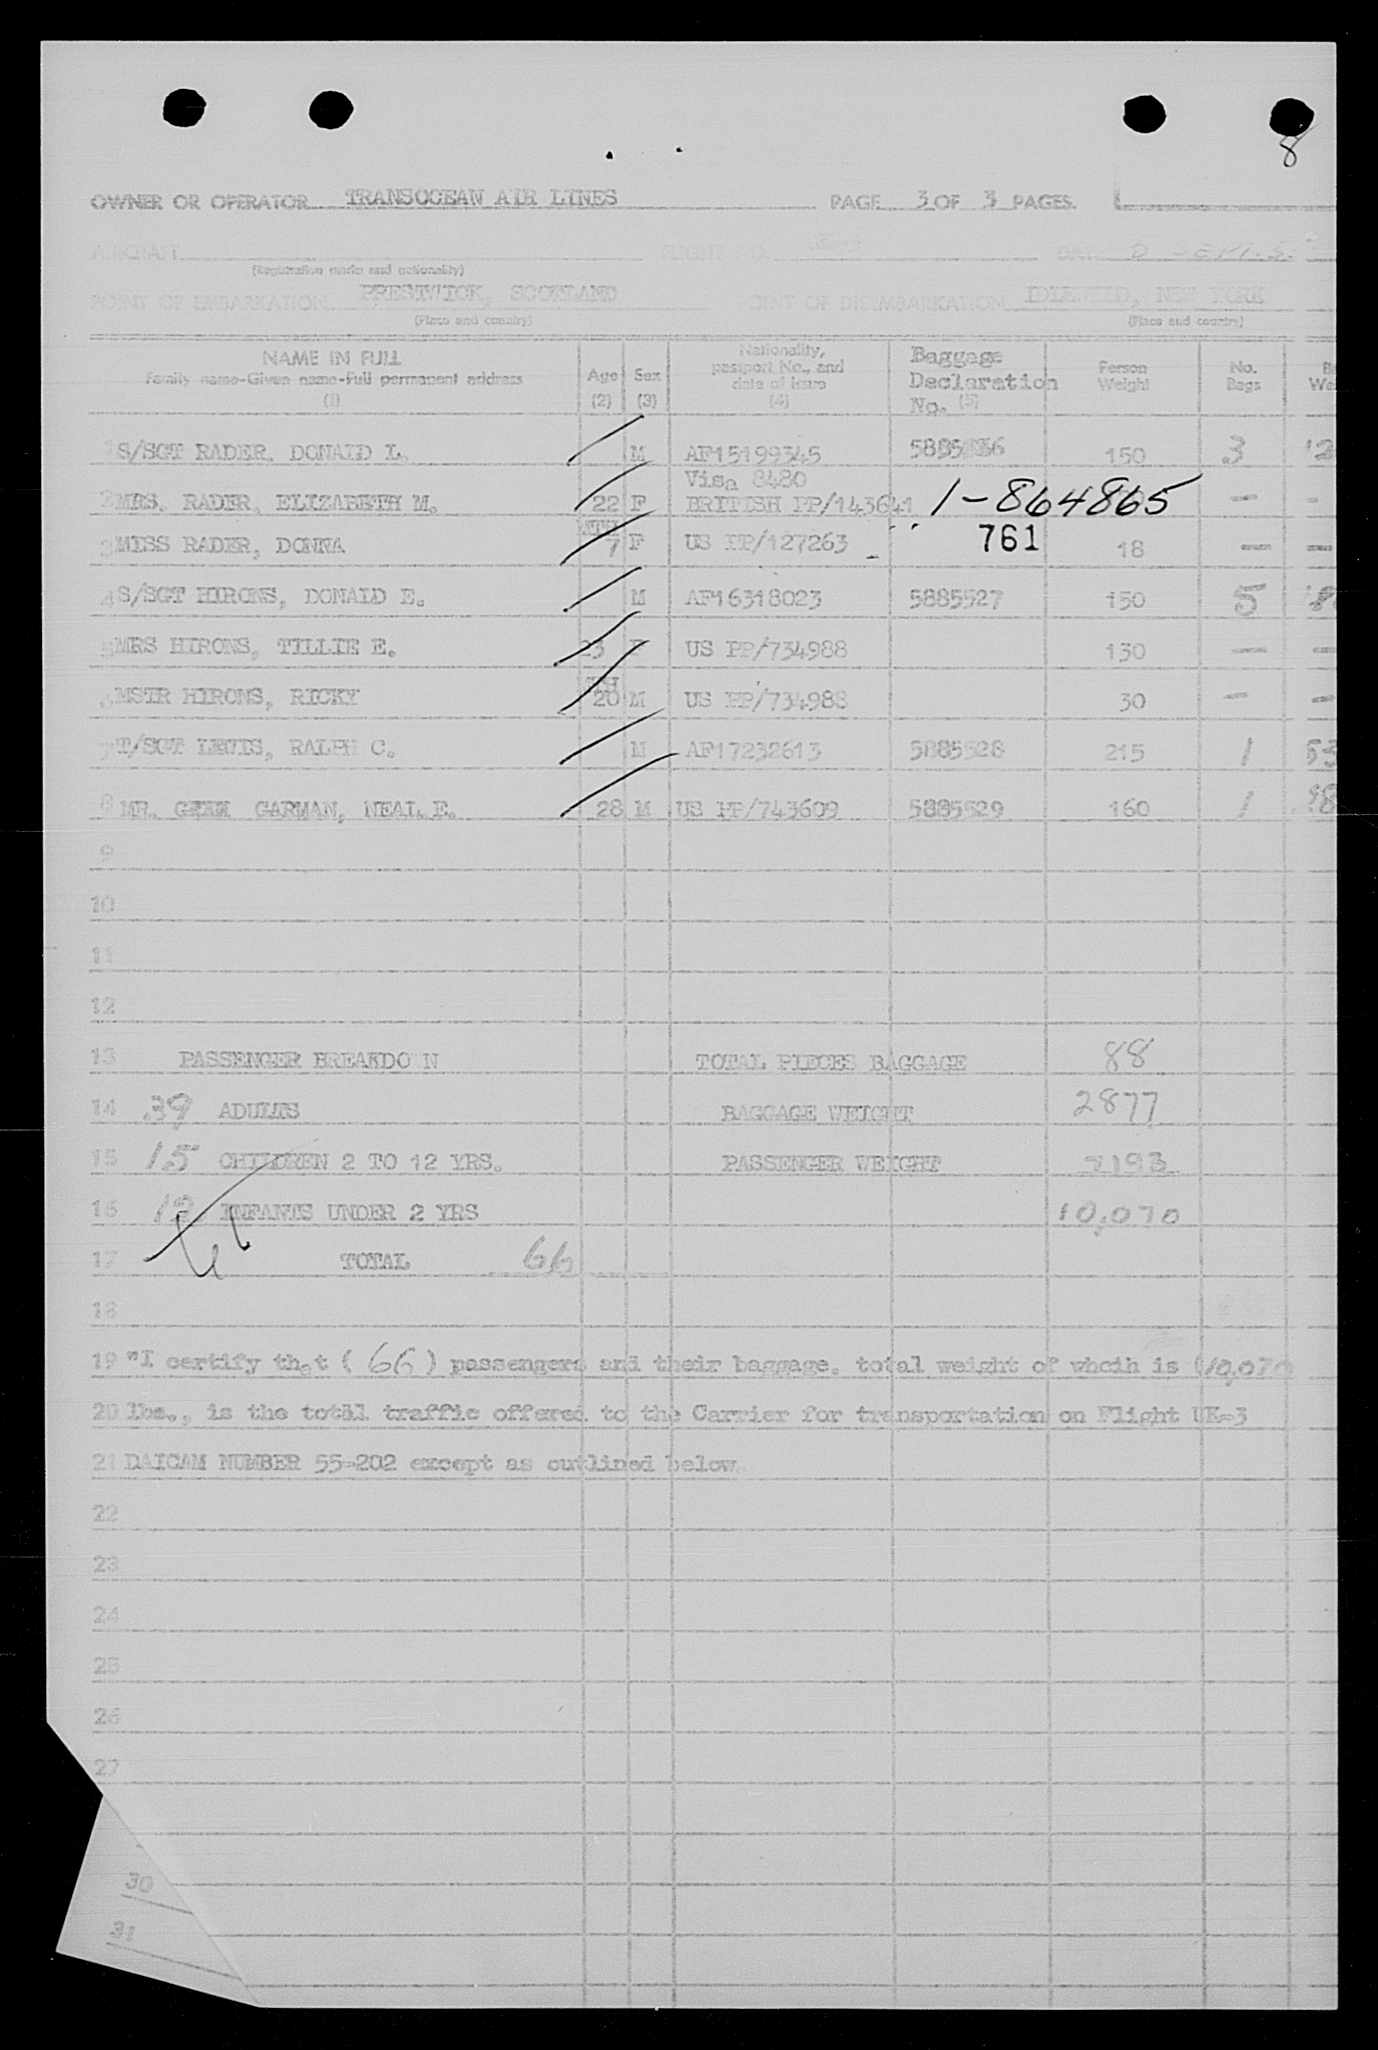 8
OWNER OR OPERATOR TRANSOCEAN AIR LINES PAGE 3 OF 3 PAGES.
AIRCRAFT FLIGHT NO. DATE SEPT. 5
(Registration marks and nationality)
POINT OF EMBARKATION PRESTWICK, SCOTLAND POINT OF DISEMBARKATION IDLEWILD, NEW YORK
(Place and country) (Place and country)
NAME IN FULL Family name-Given name-Full permanent address (1) Age (2) Sex (3) Nationality, passport No., and date of issue (4) Baggage Declaration No. (5) Person Weight No. Bags
1 S/SGT RADER, DONALD L. M AF15199345 150 3
Visa 8480
2 MRS. RADER, ELIZABETH M. 22 F BRITISH PP/143641 1-864865 - -
3 MISS RADER, DONNA 7 F US PP/127263 761 18 - -
4 S/SGT HIRONS, DONALD E. M AF16318023 5885527 150 5
5 MRS HIRONS, TILLIE E. 23 F US PP/734988 130 - -
6 MSTR HIRONS, RICKY 20 M US PP/734988 30 - -
7 T/SGT LEWIS, RALPH C. M AF17232613 5885528 215 1 53
8 MR. GARMAN, NEAL E. 28 M US PP/743609 5885529 160 1
9
10
11
12
13 PASSENGER BREAKDO N TOTAL PIECES BAGGAGE 88
14 39 ADULTS BAGGAGE WEIGHT 2877
15 15 CHILDREN 2 TO 12 YRS. PASSENGER WEIGHT 7193
16 12 INFANTS UNDER 2 YRS 10,070
17 TOTAL 66
18
19 "I certify that (66) passengers and their baggage. total weight of whcih is (10,070
20 lbs., is the total traffic offered to the Carrier for transportation on Flight UK-3
21 DAICAM NUMBER 55-202 except as outlined below
22
23
24
25
26
27
30
31